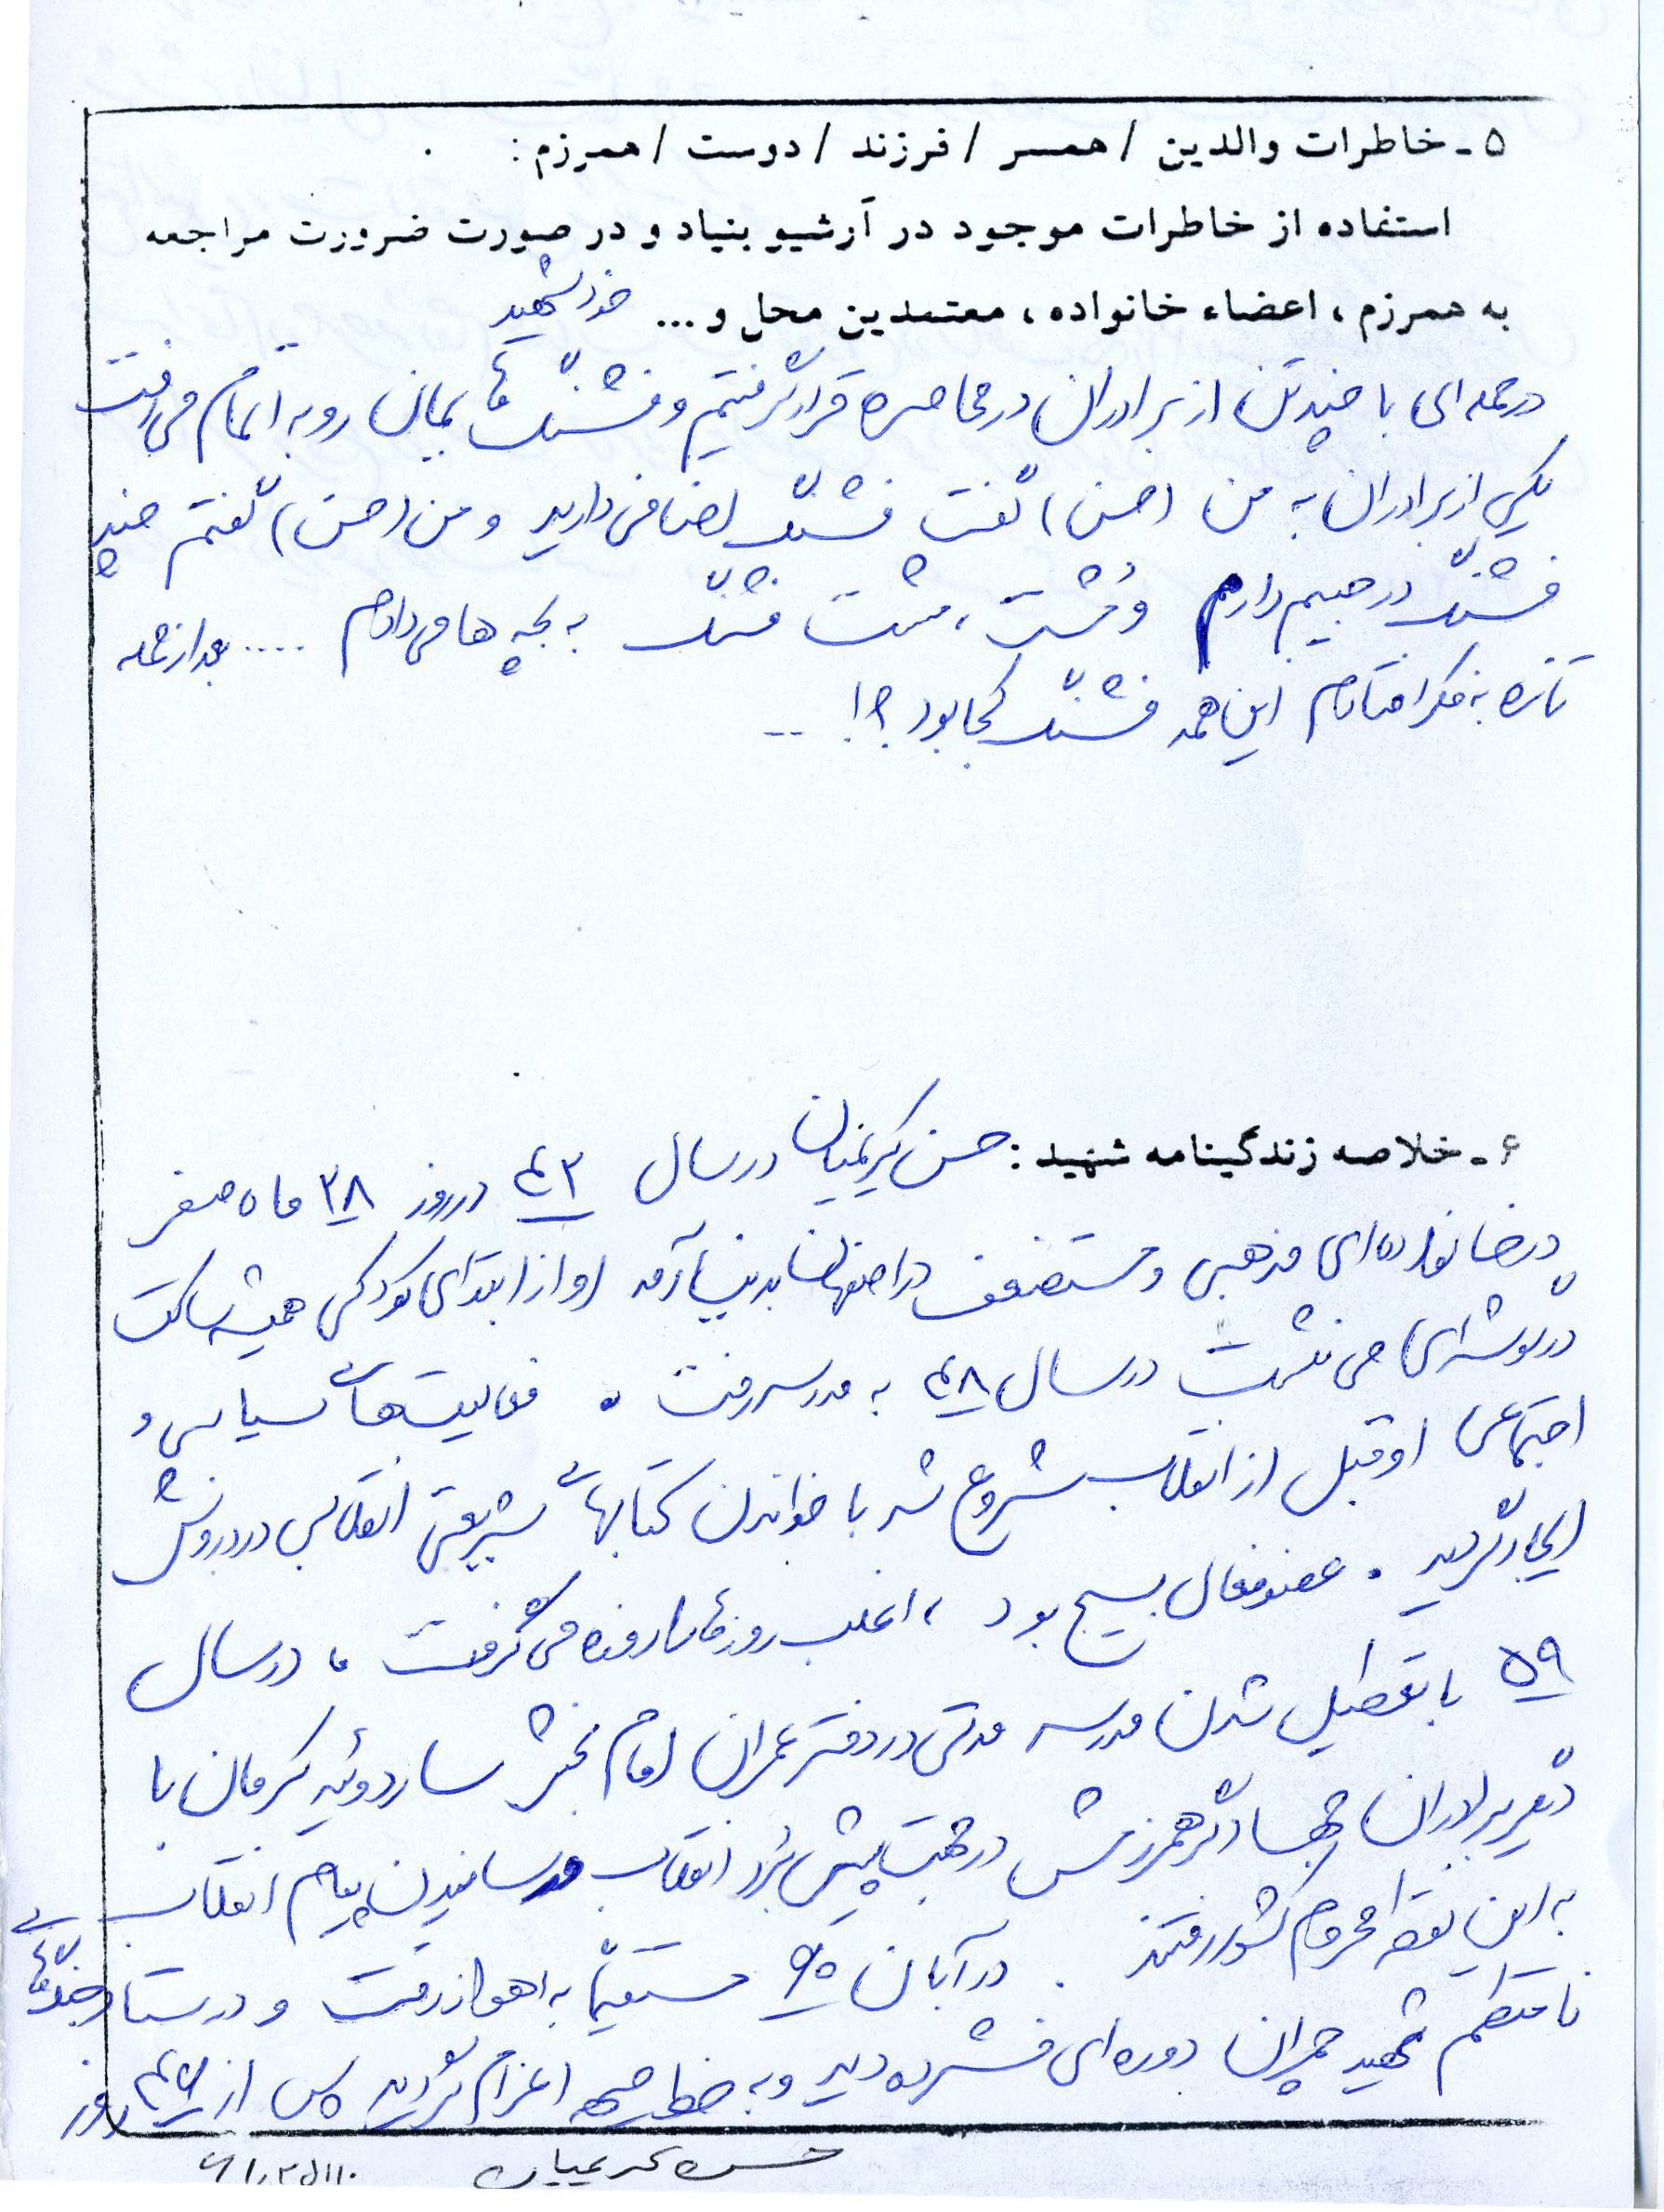 ۵ - خاطرات والدین / همسر / فرزند / دوست / همرزم :
استفاده از خاطرات موجود در آرشیو بنیاد و در صورت ضرورت مراجعه
به همرزم ، اعضاء خانواده ، معتمدین محل و ... خود شهید
در حمله ای با چند تن از برادران در محاصره قرار گرفتیم و فشنگ هایمان رو به اتمام می رفت
یکی از برادران به من (حسن) گفت فشنگ اضافی دارید و من (حسن) گفتم چند
فشنگ در جیبم دارم و مشت ، مشت فشنگ به بچه ها می دادم .... بعد از حمله
تازه به فکر افتادم این همه فشنگ کجا بود ؟! ..
۶ - خلاصه زندگینامه شهید : حسن کریمیان در سال ۴۲ در روز ۲۸ ماه صفر
در خانواده ای مذهبی و مستضعف در اصفهان بدنیا آمد او از ابتدای کودکی همیشه ساکت
در گوشه ای می نشست در سال ۴۸ به مدرسه رفت . فعالیتهای سیاسی و
اجتماعی او قبل از انقلاب شروع شد با خواندن کتابهای شریعتی انقلابی در درونش
ایجاد گردید . عضو فعال بسیج بود ، اغلب روزها را روزه می گرفت ، در سال
۵۹ با تعطیل شدن مدرسه مدتی در دفتر عمران امام بخش ساردوئیه کرمان با
دیگر برادران جهادگر همرزمش در جهت پیش برد انقلاب و رسانیدن پیام انقلاب
به این نقطه محروم کشور رفتند . در آبان ۶۰ مستقیماً به اهواز رفت و در ستاد جنگهای
نامنظم شهید چمران دوره ای فشرده دید و به خط جبهه اعزام گردید پس از روز
حسن کریمیان